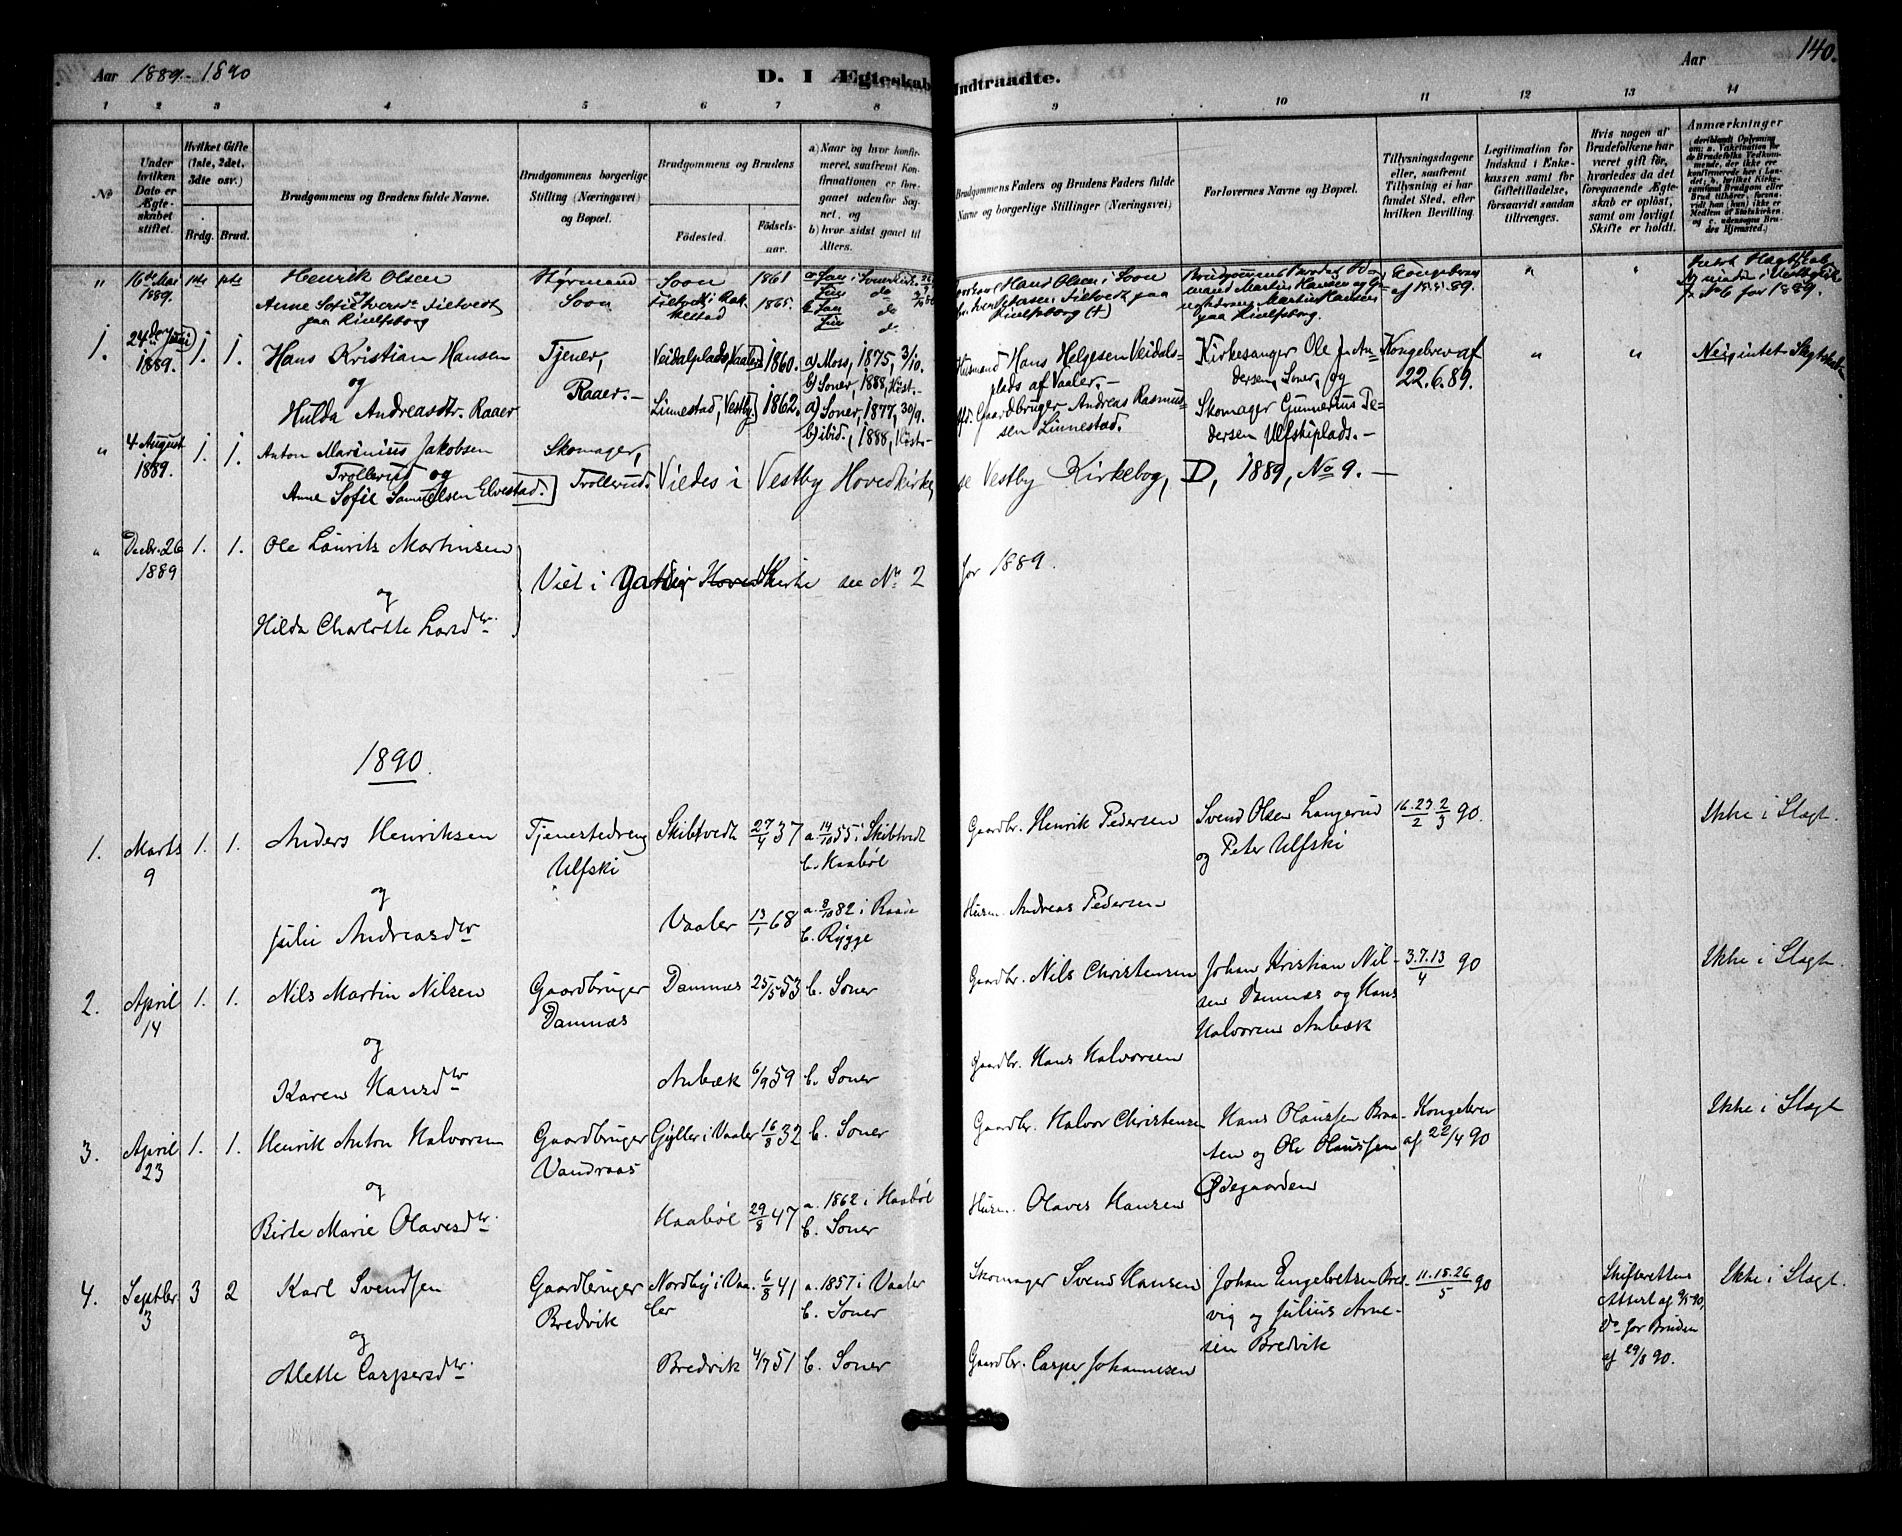 Aar 1889-1890
D. I Ægteskab
Indtraadte.
Aar
140.
1 2 3 4 5 6 7 8 9 10 11 12 13 14
No
Under hvilken Dato er Ægteskabet stiftet.
Hvilket Gifte (1ste, 2det, 3dte osv.)
Brdg. Brud.
Brudgommens og Brudens fulde Navne.
Brudgommens borgerlige Stilling (Næringsvei) og Bopæl.
Brudgommens og Brudens
Fødested.
Fødselsaar.
a) Naar og hvor konfirmeret, saafremt Konfirmationen er foregaaet udenfor Sognet, og
b) hvor sidst gaaet til Alters.
Brudgommens Faders og Brudens Faders fulde Navne og borgerlige Stillinger (Næringsvei)
Forlovernes Navne og Bopæl.
Tillysningsdagene eller, saafremt Tillysning ei har fundet Sted, efter hvilken Bevilling.
Legitimation for Indskud i Enkekassen samt for Giftetilladelse, forsaavidt saadan tiltrænges.
Hvis nogen af Brudefolkene har været gift før, hvorledes da det foregaaende Ægteskab er opløst, samt om lovligt Skifte er holdt.
Anmærkninger
" 16de Mai 1889.
Henrik Olsen
og
Anne
paa Kiølfsborg
Styrmand
Soon
Soon 1861
1865
Hans Olsen i Soon
Kongebrev af 18.5.89.
" "
No 6 for 1889.
1. 24de Juni 1889. 1. 1.
Hans Kristian Hansen
og
Hulda Andreasdtr. Raaer
Tjener,
Raaer.-
Veidalplads, Vaaler 1860.
Linnestad, Vestby 1862.
a) Moss, 1875, 3/10.
b) Soner, 1888, Høst.-
a) Soner, 1877, 30/9.
b) ibid., 1888, Høst.-
Husmand Hans Helgesen Veidalsplads af Vaaler.-
Gaardbruger Andreas Rasmussen Linnestad.
Kirkesanger Ole Andersen, Soner, og
Skomager Gunnerius Pedersen Ulfskiplads.-
Kongebrev af
22.6.89.
" "
Nei, intet Slægtskab
" 4 August 1889. 1. 1.
Anton Marinius Jakobsen
Trollerud og
Anne Sofie Samuelsen Elvestad.
Skomager,
Trollerud.
Viedes i Vestby Hovedkirke,
se Vestby Kirkebog, D, 1889, No 9.-
" Decbr. 26 1889 1. 1.
Ole Laurits Martinsen
og
Hilda Charlotte Larsdtr.
Viet i Hoved Kirke see No 2
for 1889.
1890.
1. Marts 9 1. 1.
Anders Henriksen
og
Julie Andreasdtr
Tjenestedreng
Ulfski
Skibtvedt 27/4 37
a. 14/10 55 i Skibtvedt
b. Haabøl
Vaaler 13/1 68
a. 8/10 82 i Raade
b. Rygge
Gaardbr. Henrik Pedersen
Husm. Andreas Pedersen
Svend Olsen Langerud
og Peter Ulfski
16.23/2 2/3 90.
Ikke i Slægt.
2. April 14 1. 1.
Nils Martin Nilsen
og
Karen Hansdtr
Gaardbruger
Damnæs
Damnæs 25/5 53 b. Soner
Aubæk 6/9 59 b. Soner
Gaardbr. Nils Christensen
Gaardbr. Hans Halvorsen
Johan Kristian Nilsen Damnæs og Hans
Halvorsen Aubæk
3.7.13/4 90
Ikke i Slægt.
3. April 23 1. 1.
Henrik Anton Halvorsen
og
Birte Marie Olavesdtr
Gaardbruger
Vandraas
Gyller i Vaaler 16/8 32 b. Soner
Haabøl 29/8 47
a. 1862 i Haabøl
b. Soner
Gaardbr. Halvor Christensen
Husm. Olaves Hansen
Hans Olaussen Braaten og Ole Olaussen
Ødegaarden
Kongebrev
af 22/4 90
Ikke i Slægt
4. Septbr. 3 3 2
Karl Svendsen
og
Alette Caspersdtr
Gaardbruger
Bredvik
Nordby i Vaaler 6/8 41
a. 1857 i Vaaler
b. Soner
Bredvik 4/7 51 b. Soner
Skomager Svend Hansen
Gaardbr. Casper Johannesen
Johan Engebretsen Bredvig og Julius Arnesen Bredvik
11.18.26/5 90
Skifterettens
Attest af 9/5 90,
Do for Bruden
af 29/8 90.
Ikke i Slægt.